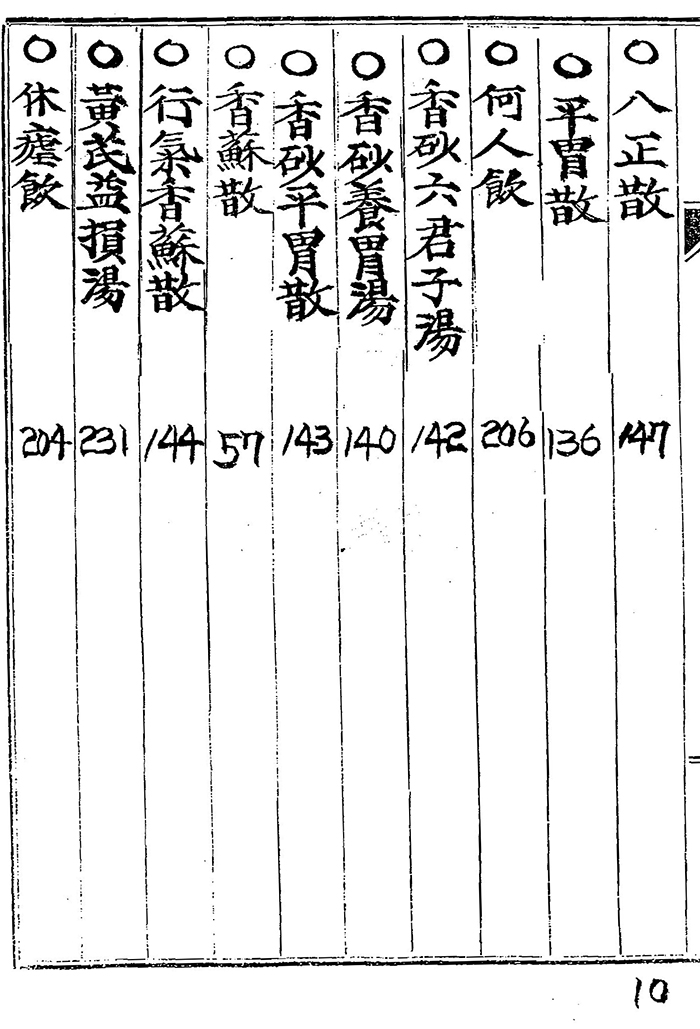 ○八正散 147
○平胃散 136
○何人飮 206
○香砂六君子湯 142
○香砂養胃湯 140
○香砂平胃散 143
○香蘇散 57
○行氣香蘇散 144
○黃芪益損湯 231
○休瘧飮 204
10